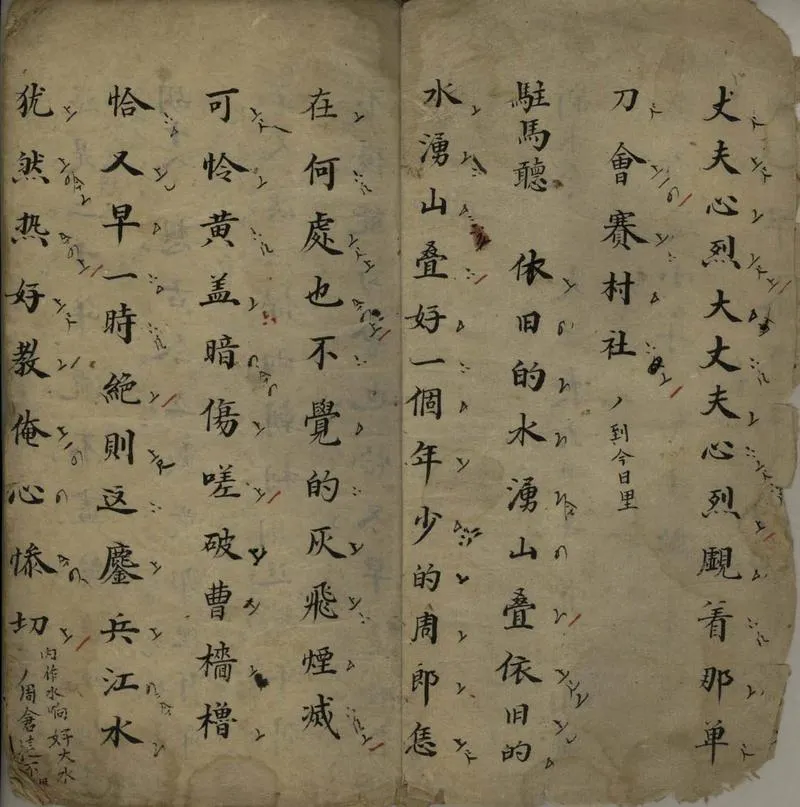 丈夫心烈大丈夫心烈覷着那单
刀會賽村社ノ到今日里
駐馬聽 依旧的水湧山叠依旧的
水湧山叠好一個年少的周郎恁
在何處也不覺的灰飛煙滅
可怜黄盖暗傷嗟破曹檣櫓
恰又早一時絶則这鏖兵江水
犹然热好教俺心惨切
内作水响好大水
ノ周倉